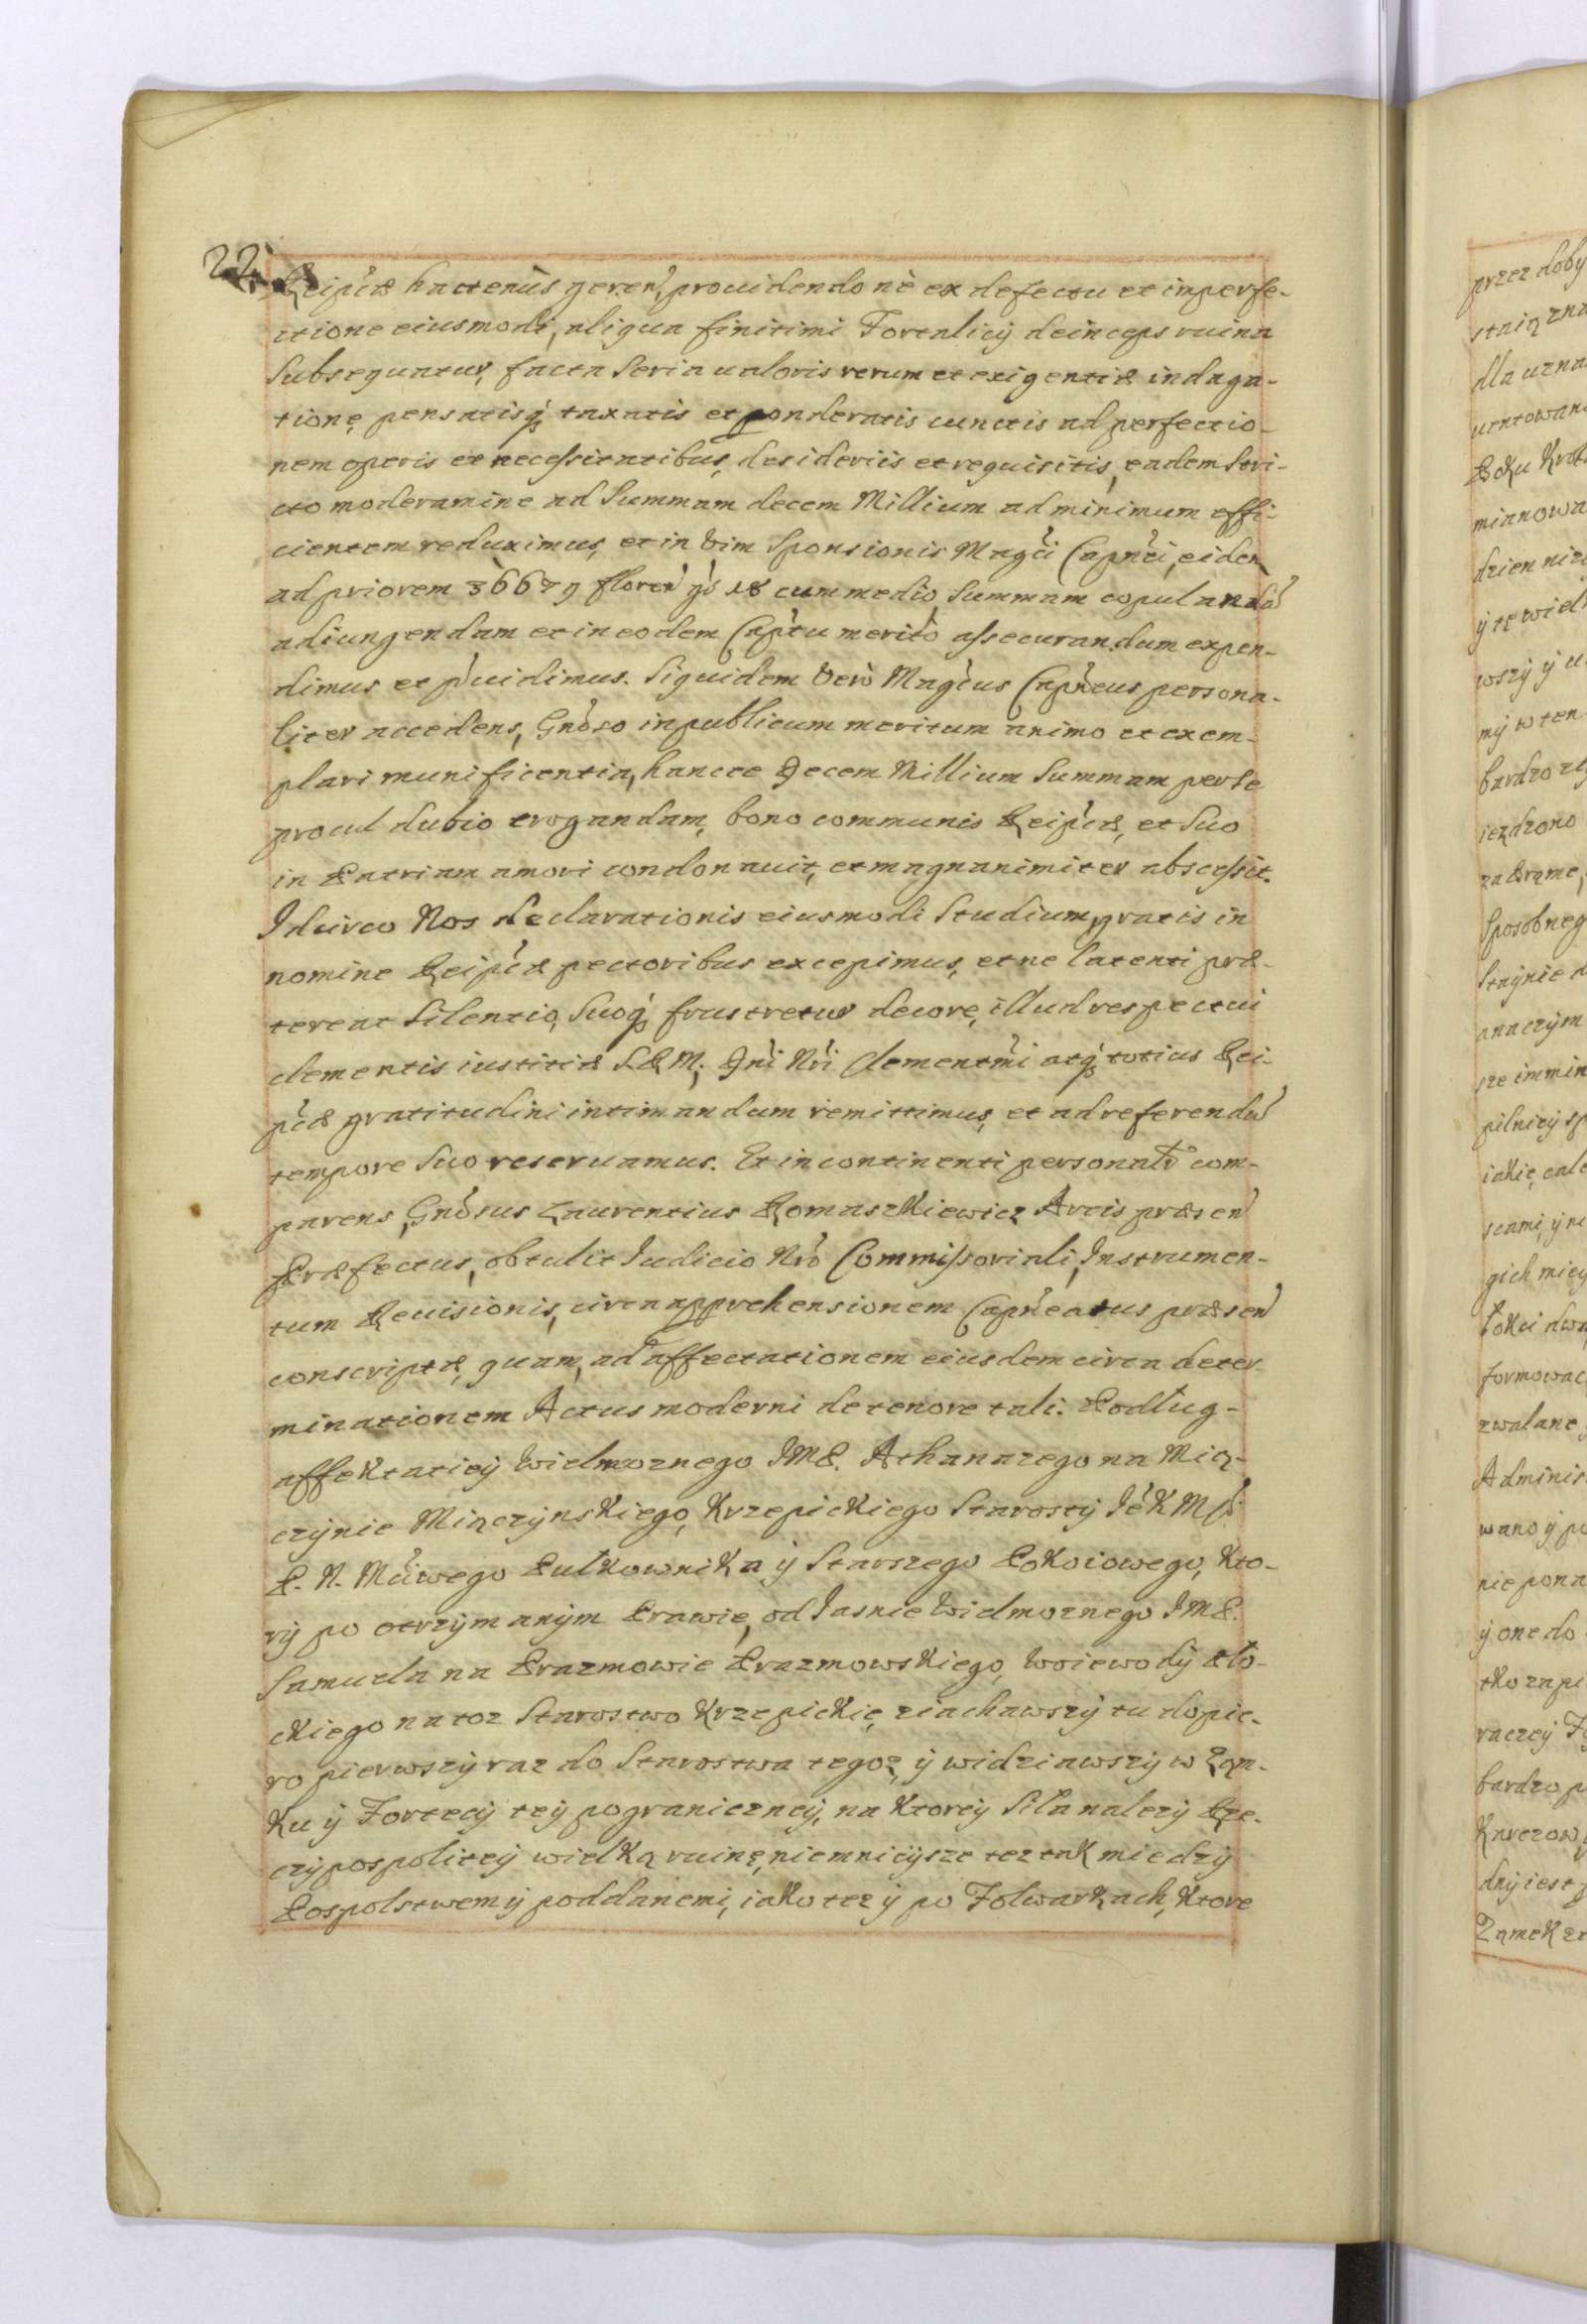 22.
Reipcæ hactenùs geren, prouidendo nè ex defectu et imperfe-
ctione eiusmodi, aliqua finitimi Fortalicÿ deinceps ruina
Subsequatur, facta Seria ualoris rerum et exigentiæ indaga-
tione, pensatisq; taxatis et ponderatis cunctis ad perfectio-
nem operis et necessitatibus, desideriis et requisitis, eadem Stri-
cto moderamine ad Summam decem Millium ad minimum effi-
cientem reduximus, et in Vim Sponsionis Magci Capnei, eidem
ad priorem 36679 floren gs 18 cum medio, Summam copulandã
adiungendam et in eodem Captu meritò assecurandam expen-
dimus et puidimus. Siquidem Verò Magcus Capneus persona-
liter accedens, Gnoso in publicum meritum animo et exem-
plari munificentia, hancce Decem Millium Summam per Se
procul dubio erogandam, bono communis Reipcæ, et Suo
in Patriam amori condonauit, et magnanimiter abscessit.
Idcirco Nos declarationis eiusmodi Studium, gratis in
nomine Reipcæ pectoribus excepimus, et ne latenti præ-
tereat Silentio, Suoq; frustretur decore, illud respectui
clementis iustitiæ SRM; Dni Nri Clementmi atq; totius Rei-
pcæ gratitudini intimandum remittimus, et ad referendũ
tempore Suo reseruamus. Et in continenti personalr com-
parens, Gnosus Laurentius Romaszkiewicz Arcis præsen
Præfectus, obtulit Iudicio Nro Commissoriali, Instrumen-
tum Reuisionis, circa apprehensionem Capneatus præsen
conscriptæ, quam, ad affectationem eiusdem circa deter
minationem Actus moderni de tenore tali. Podług-
affektatieÿ Wielmoznego JMP. Athanazego na Mią-
czÿnie Miączÿnskiego, Krzepickiego Starostÿ JéKMśi
P. N. Młwego Pułkownika ÿ Starszego Pokoiowego, Kto-
rÿ po otrzÿmanÿm Prawie, od Jasnie Wielmoznego JMP.
Samuela na Prazmowie Prazmowskiego, Woiewodÿ Pło-
ckiego na toz Starostwo Krzepickie, ziachawszÿ tu dopie-
ro pierwszÿ raz do Starostwa tegoz, ÿ widziawszÿ w Ząm-
ku ÿ Fortecÿ teÿ pograniczneÿ, na Ktoreÿ Siła nalezÿ Rze-
czÿpospoliteÿ wielką ruinę, niemnieÿsze tez tak miedzÿ
Pospolstwem ÿ poddanemi, iako tez ÿ po Folwarkach, Ktore
przez doby
dla uzna
mianowa
mÿ w ten
iezdzono
Sposobneg
Staÿnie d
gich mieÿ
formowac
zwalane
Adminis
bardzo p
dnÿ iest
Ząmek